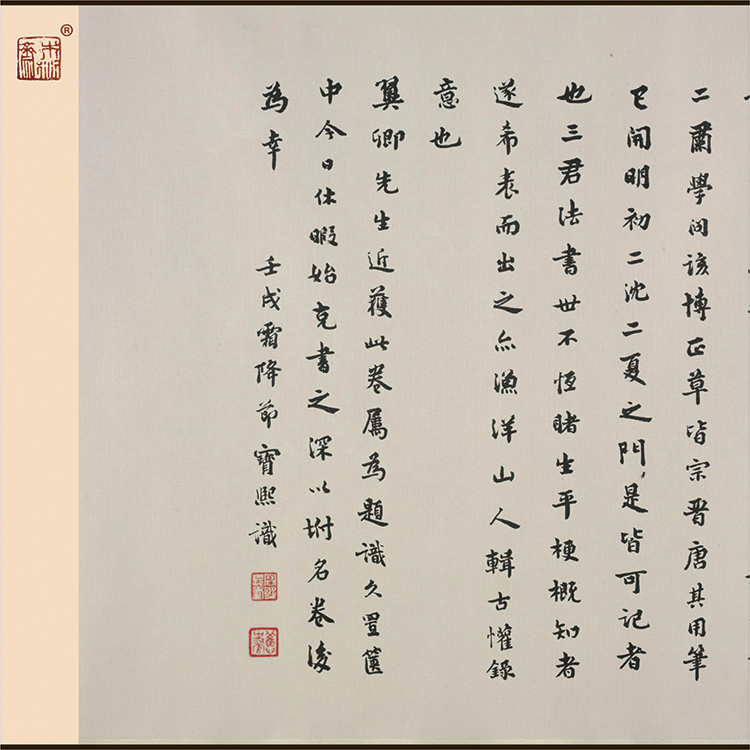 二蕭學問該博正草皆宗晉唐其用筆
已開明初二沈二夏之門是皆可記者
也三君法書世不恆睹生平梗概知者
遂希表而出之亦漁洋山人輯古懽錄
意也
翼卿先生近獲此卷屬為題識久置篋
中今日休暇始克書之深以坿名卷後
為幸
壬戌霜降節寶熙識